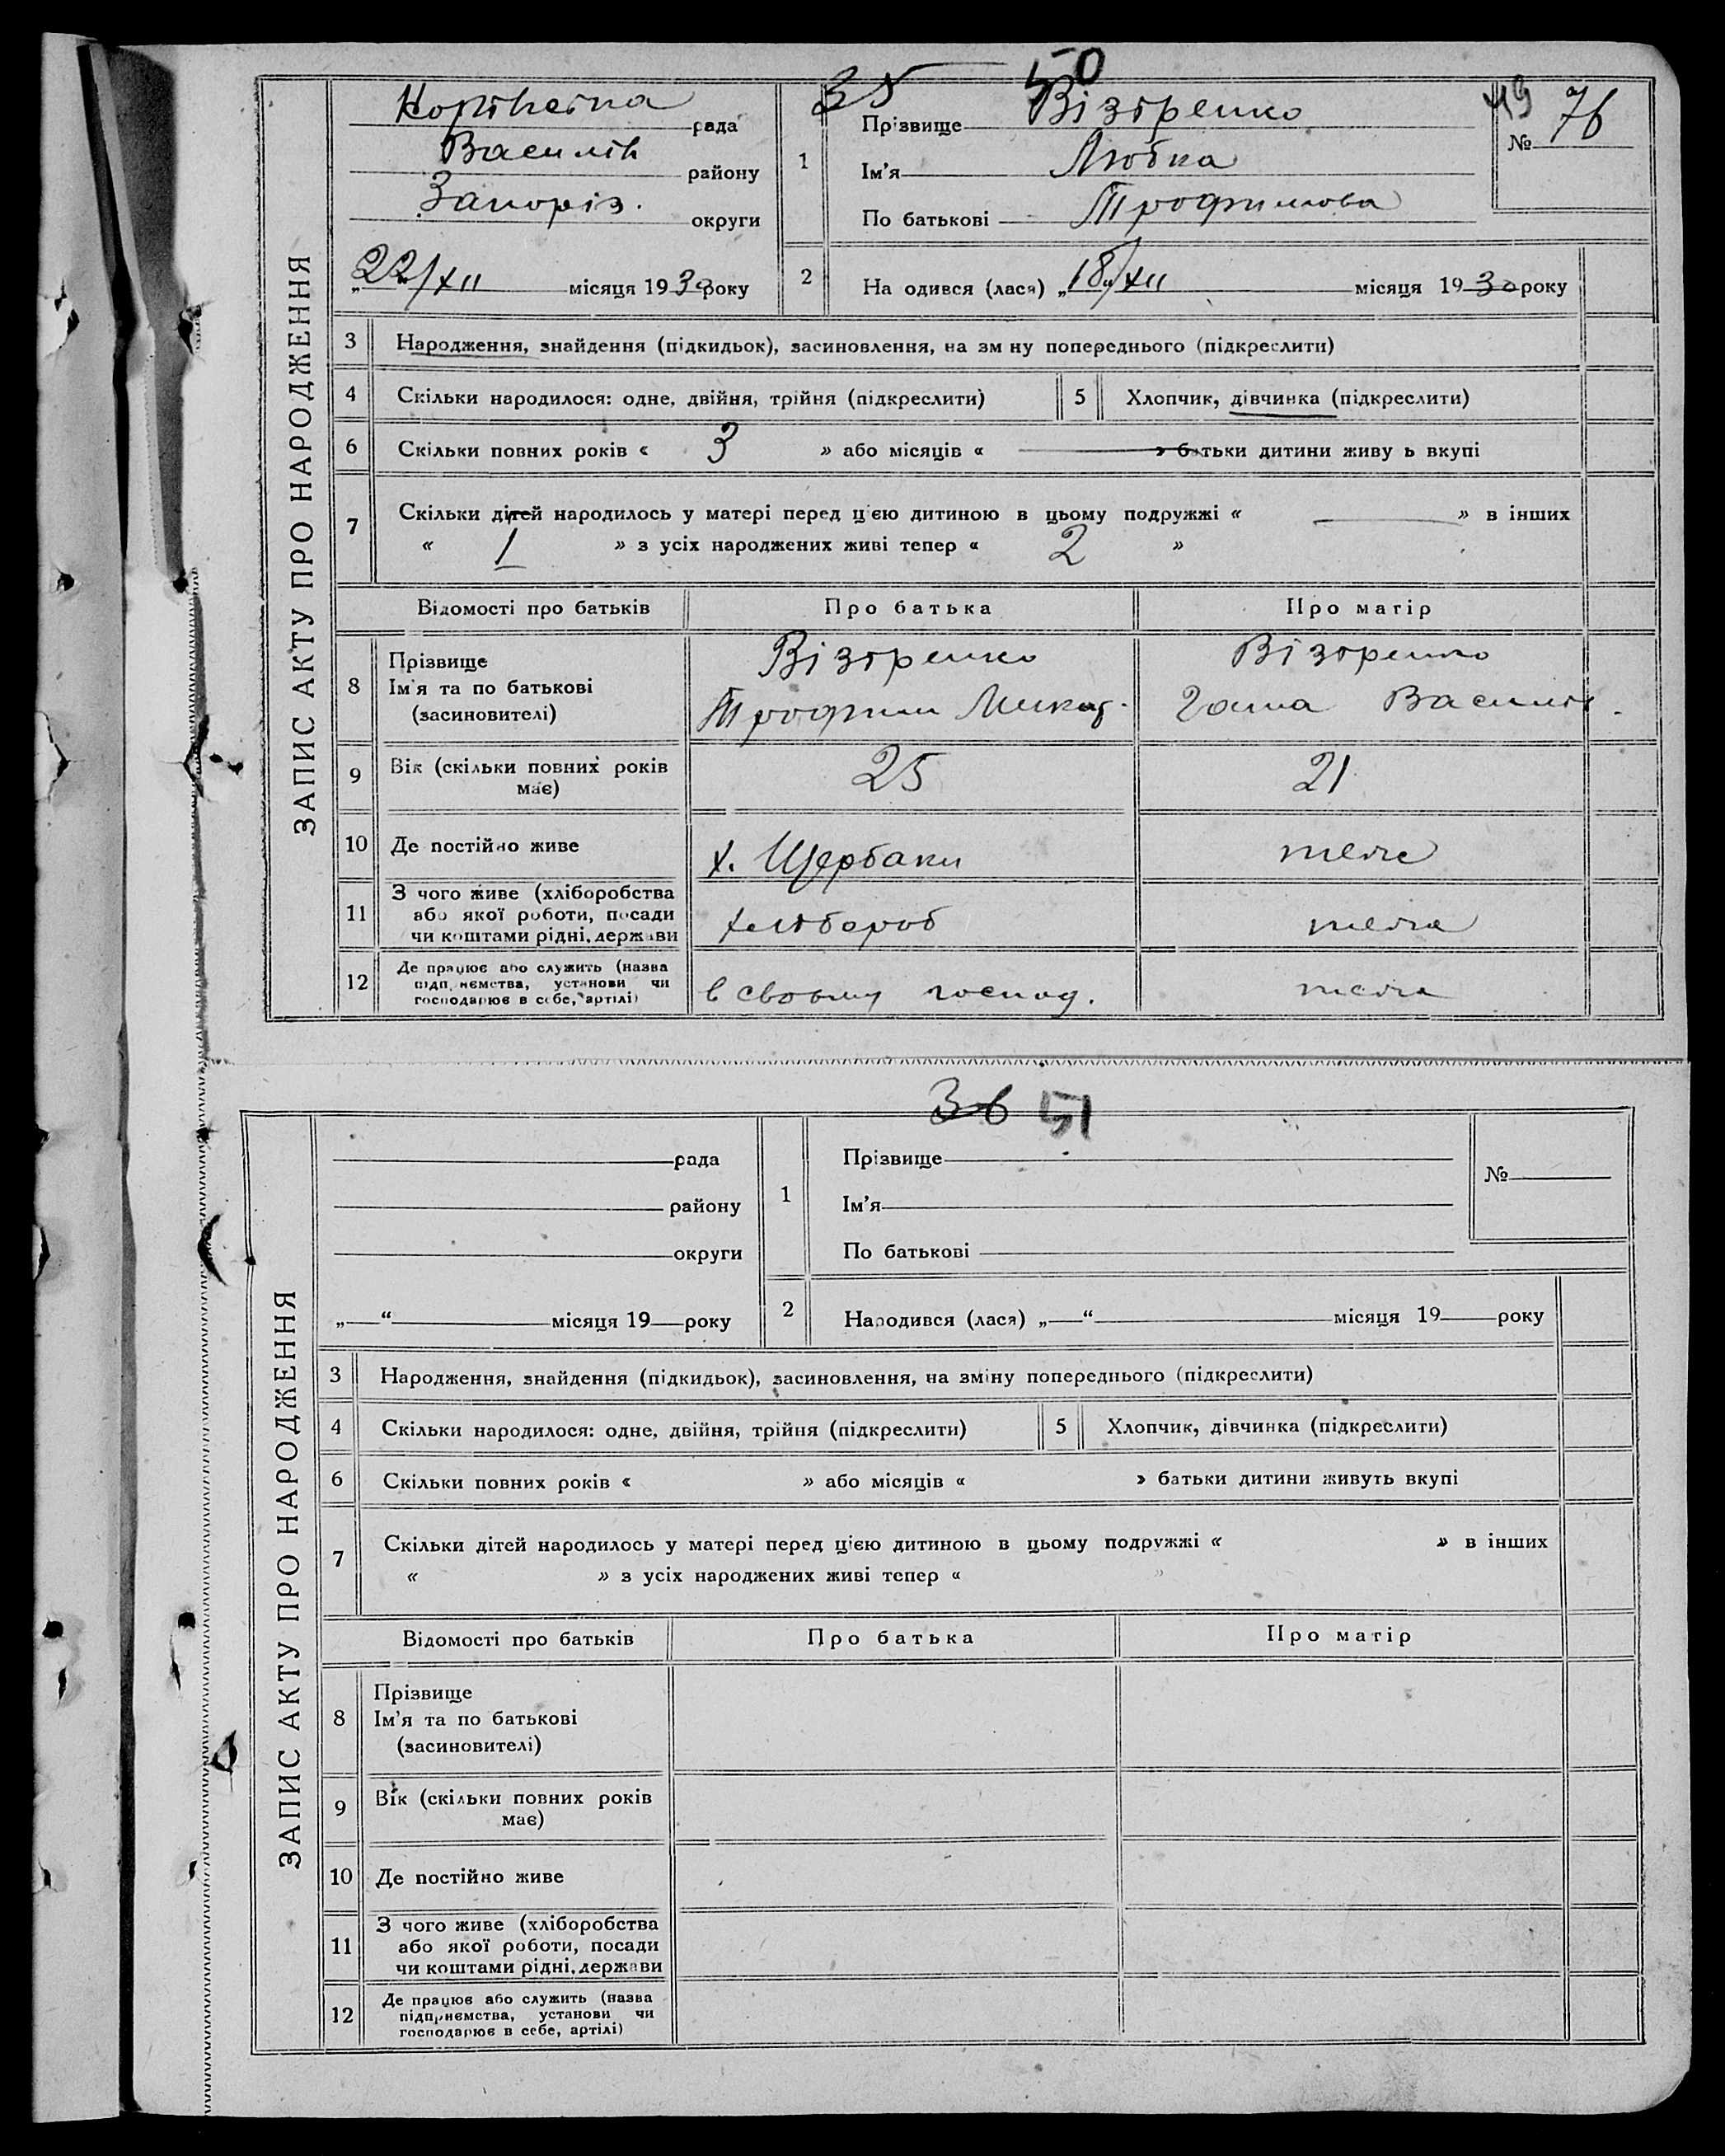 35 50
ЗАПИС АКТУ ПРО НАРОДЖЕННЯ
рада
Василів району
Запоріз. округи
„22/XII місяця 1930 року
1 Прізвище Візіренко
Ім'я Любка
По батькові Трофимова
49 № 76
2 На одився (лася) „18/XII місяця 1930 року
3 Народження, знайдення (підкидьок), засиновлення, на зм ну попереднього (підкреслити)
4 Скільки народилося: одне, двійня, трійня (підкреслити) 5 Хлопчик, дівчинка (підкреслити)
6 Скільки повних років « 3 » або місяців « — » батьки дитини живу ь вкупі
7 Скільки дітей народилось у матері перед цією дитиною в цьому подружжі « — » в інших
« 1 » з усіх народжених живі тепер « 2 »
Відомості про батьків Про батька Про матір
8 Прізвище
Ім'я та по батькові
(засновителі)
Візіренко
Трофим
Візіренко
Василів.
9 Вік (скільки повних років
має)
25 21
10 Де постійно живе х. Щербаки теже
11 З чого живе (хліборобства
або якої роботи, посади
чи коштами рідні, держави
хлібороб теж
12 Де працює або служить (назва
підп иємства, установи чи
господарює в себе, артілі)
в своему господ. теж
36 51
ЗАПИС АКТУ ПРО НАРОДЖЕННЯ
рада
району
округи
„—“ місяця 19 — року
1 Прізвище
Ім'я
По батькові
№
2 Народився (лася) „—“ місяця 19 — року
3 Народження, знайдення (підкидьок), засиновлення, на зміну попереднього (підкреслити)
4 Скільки народилося: одне, двійня, трійня (підкреслити) 5 Хлопчик, дівчинка (підкреслити)
6 Скільки повних років « » або місяців « » батьки дитини живуть вкупі
7 Скільки дітей народилось у матері перед цією дитиною в цьому подружжі « » в інших
« » з усіх народжених живі тепер «
Відомості про батьків Про батька Про матір
8 Прізвище
Ім'я та по батькові
(засиновителі)
9 Вік (скільки повних років
має)
10 Де постійно живе
11 З чого живе (хліборобства
або якої роботи, посади
чи коштами рідні, держави
12 Де працює або служить (назва
підприємства, установи чи
господарює в себе, артілі)